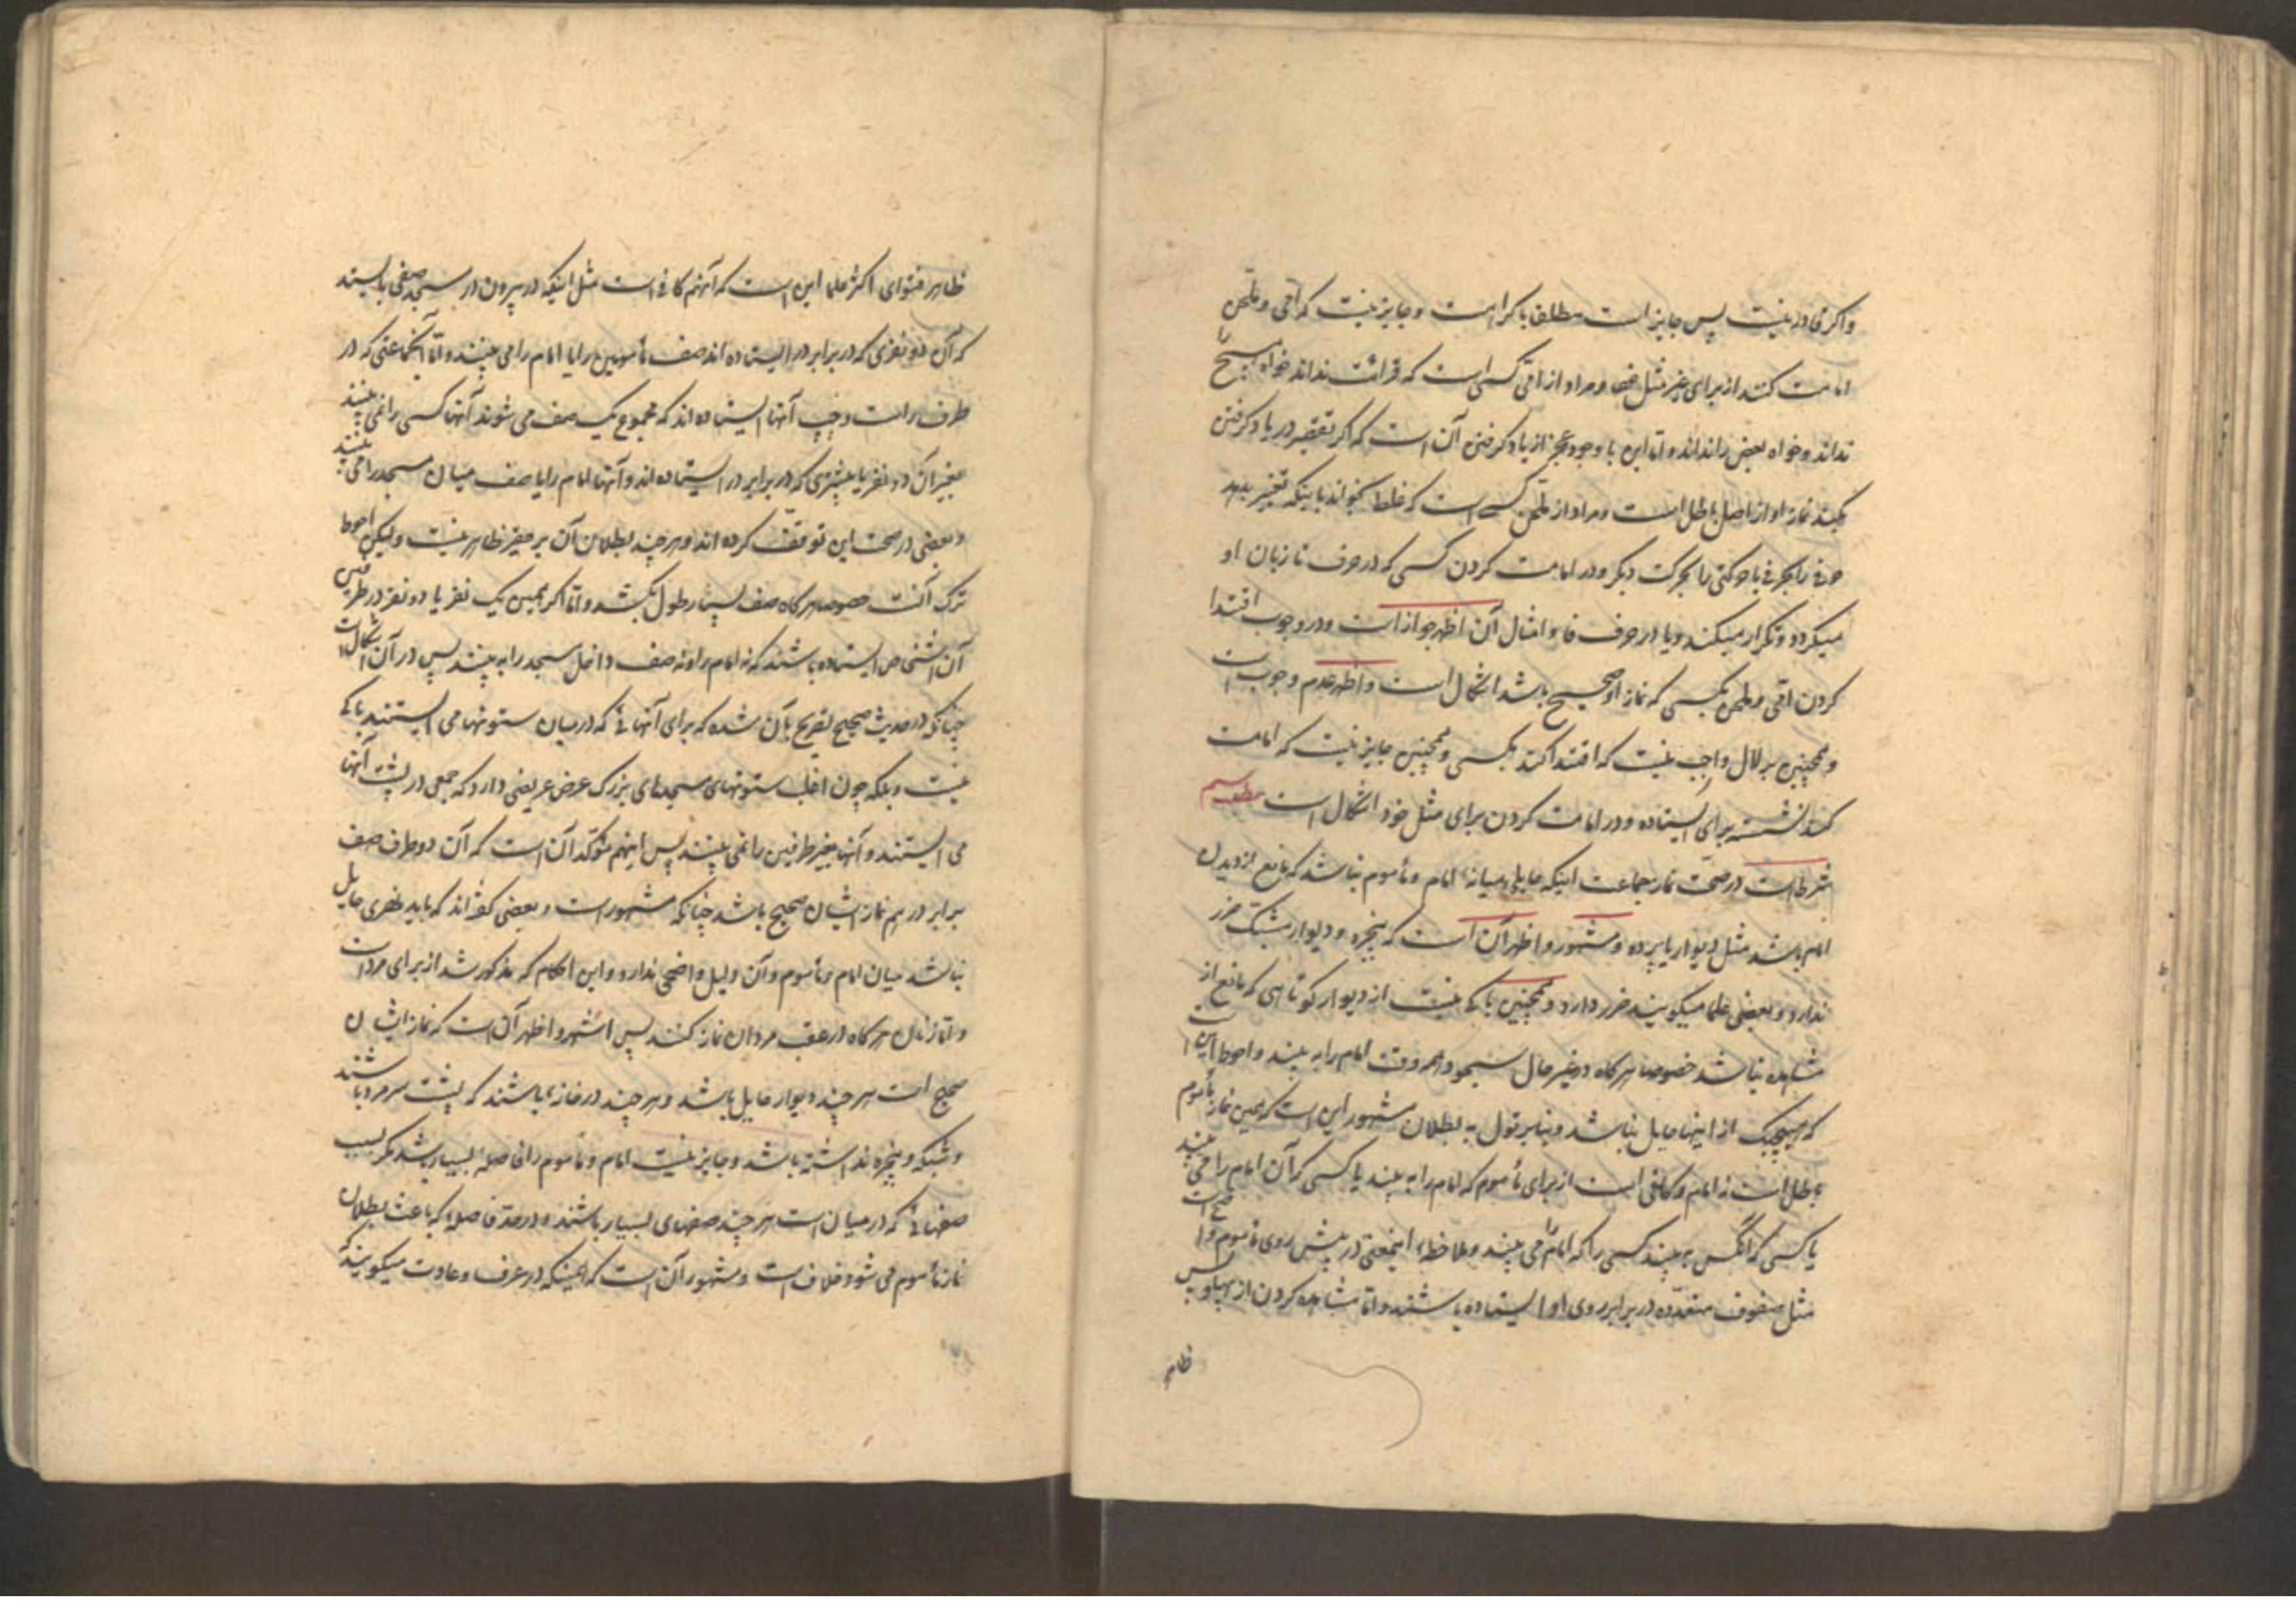 واکر قادر نیست پس جایز است مطلقا با کراهت و جایز نیست که امی و ملحن
امامت کند از برای غیر مثل خود و مراد از امی کسی است که قرائت نداند خواه هیچ را
نداند و خواه بعض را نداند و اما این با وجود عجز از یاد کرفتن آن است که اکر تقصیر در یاد کرفتن
بکند نماز او از اصل باطل است و مراد از ملحن کسی است که غلط بخواند باینکه تغییر بدهد
حرفی را بحرفی یا حرکتی را بحرکت دیکر و در امامت کردن کسی که در حرف تا زبان او
میکردد و تکرار میکند و یا در حرف فا و امثال آن اظهر جواز است و در وجوب اقتدا
کردن امی و ملحن بکسی که نماز او صحیح باشد اشکال است و اظهر عدم وجوب است
و همچنین بر لال واجب نیست که اقتدا کند بکسی و همچنین جایز نیست که امامت
کند نشسته برای ایستاده و در امامت کردن برای مثل خود اشکال است مطلب سیم
شرط است در صحت نماز جماعت اینکه حایلی میانهٔ امام و مأموم نباشد که مانع از دیدن
امام باشد مثل دیوار یا پرده و مشهور و اظهر آن است که پنجره و دیوار مشبک ضرر
ندارد و بعضی علما میکویند ضرر دارد و همچنین باکی نیست از دیوار کوتاهی که مانع از
مشاهده نباشد خصوصا هر کاه در غیر حال سجود و هر وقت امام را به بیند و احوط این است
که هیچیک از اینها حایل نباشد و بنا بر قول به بطلان مشهور این است که همین نماز مأموم
باطل است نه امام و کافی است از برای مأموم که امام را به بیند یا کسی که آن امام را می بیند
یا کسی که آنکس به بیند کسی را که امام را می بیند و ملاحظهٔ اینمعنی در پیش روی مأموم واضح است
مثل صفوف متعدده در برابر روی او ایستاده باشند و اما مشاهده کردن از پهلو پس
ظاهر
ظاهر فتوای اکثر علما این است که آنهم کافی است مثل اینکه در بیرون در مسجد صفی بایستند
که آن دو نفری که در برابر در ایستاده اند صف مأمومین را یا امام را می بینند و اما آنجماعتی که در
طرف راست و چپ آنها ایستاده اند که مجموع یک صف می شوند آنها کسی را نمی بینند
بغیر آن دو نفر یا بیشتری که در برابر در ایستاده اند و آنها امام را یا صف میان مسجد را می بینند
و بعضی در صحت این توقف کرده اند و هر چند بطلان آن بر حقیر ظاهر نیست و لیکن احوط
ترک آنست خصوصا هر کاه صف بسیار طول بکشد و اما اکر همین یک نفر یا دو نفر در طرفین
آن اشخاص ایستاده باشند که نه امام را و نه صف داخل مسجد را به بینند پس در آن اشکال است
چنانکه در حدیث صحیح تصریح بآن شده که برای آنهائی که در میان ستونها می ایستند باکی
نیست و بلکه چون اغلب ستونهای مسجدهای بزرک عرض عریضی دارد که جمعی در پشت آنها
می ایستند و آنها بغیر طرفین را نمی بینند پس اینهم مؤکد آن است که آن دو طرف صف
برابر در هم نماز ایشان صحیح باشد چنانکه مشهور است و بعضی کفته اند که باید نهری حایل
نباشد میان امام و مأموم و آن دلیل واضحی ندارد و این احکام که مذکور شد از برای مرد است
و اما زنان هر کاه در عقب مردان نماز کنند پس اشهر و اظهر آن است که نماز ایشان
صحیح است هر چند دیوار حایل باشد و هر چند در خانهٔ باشند که پشت سر مرد باشند
و شبکه و پنجره نداشته باشد و جایز نیست امام و مأموم را فاصلهٔ بسیار باشد مکر بسبب
صفهائی که در میان است هر چند صفهای بسیار باشند و در حد فاصلهٔ که باعث بطلان
نماز مأموم می شود خلاف است و مشهور آن است که همینکه در عرف و عادت میکویند که